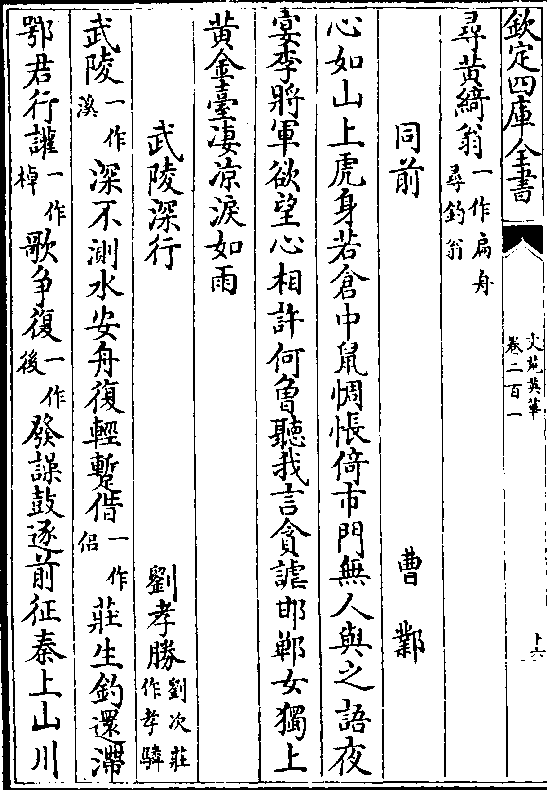 欽定四庫全書
文苑英華
卷二百一
上六
尋黃綺翁一作扁舟尋釣翁
同前 曹鄴
心如山上虎身若倉中鼠惆悵倚市門無人與之語夜
宴李將軍欲望心相許何曾聽我言貪謔邯鄲女獨上
黃金臺淒涼淚如雨
武陵深行 劉孝勝劉次莊作孝騂
武陵一作溪深不測水安舟復輕蹔偕一作侣莊生釣還滯
鄂君行讙一作棹歌爭復一作後發譟鼓逐前征秦上山川